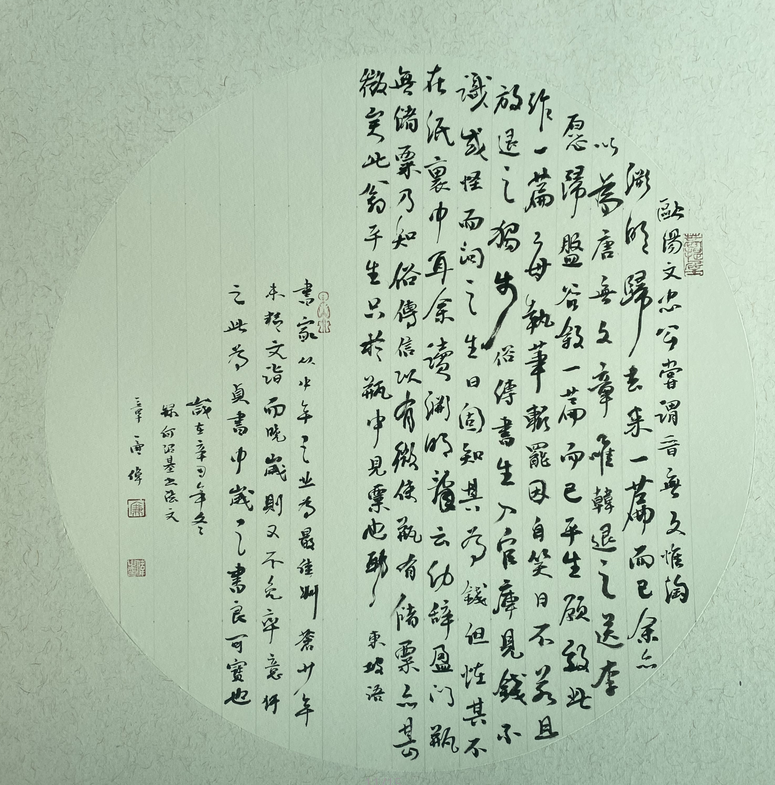 歐陽文忠公嘗謂晉無文惟陶
淵明歸去来一篇而已余亦
以為唐無文章唯韓退之送李
愿歸盤谷敘一篇而已平生願效此
作一篇每執筆輒罷因自笑曰不若且
放退之獨步俗傳書生入官庫見錢不
識或怪而问之生曰固知其為錢但恠其不
在纸裏中耳余讀淵明云幼稚盈门瓶
無储粟乃知俗傳信以有徵使瓶有储粟亦甚
微矣此翁平生只於瓶中見粟也耶東坡语
書家以少年之為最佳年
未精文而晚歲則又不免率意
之此為貞書中歲之書良可寶也
歲在辛丑年冬
録何绍基文
偉